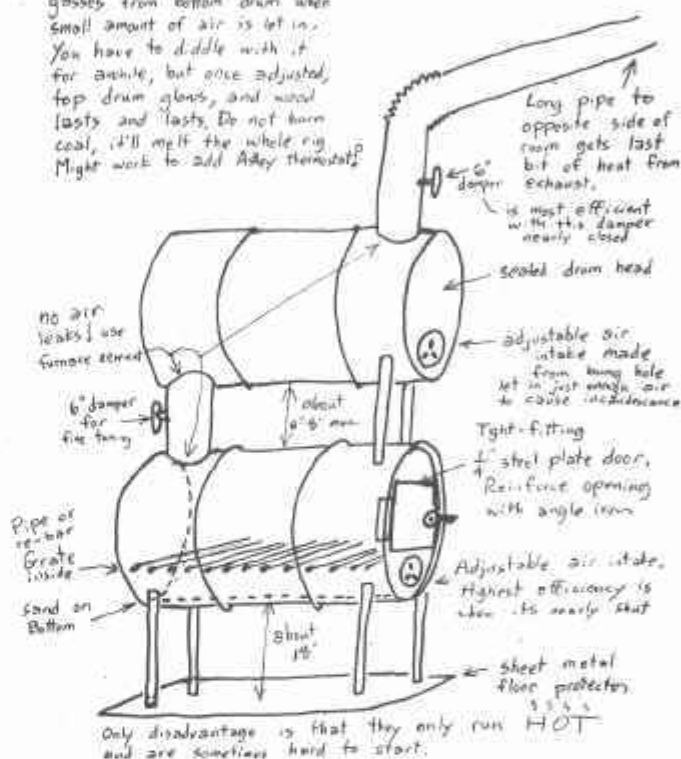 gasses from bottom drum when
small amount of air is let in.
You have to diddle with it
for awhile, but once adjusted,
top drum glows, and wood
lasts and lasts. Do not burn
coal, it'll melt the whole rig
Might work to add Ashley thermostat?
Long pipe to
opposite side of
room gets last
bit of heat from
exhaust.
6"
damper
is most efficient
with this damper
nearly closed
sealed drum head
no air
leaks! use
furnace cement
adjustable air
intake made
from bung hole
let in just enough air
to cause incandescence
6" damper
for
fine tuning
about
Tight-fitting
1/4" steel plate door.
Reinforce opening
with angle iron
Pipe or
re-bar
Grate
inside
Adjustable air intake.
Highest efficiency is
when its nearly shut
Sand on
Bottom
about
18"
sheet metal
floor protector
Only disadvantage is that they only run HOT
and are sometimes hard to start.